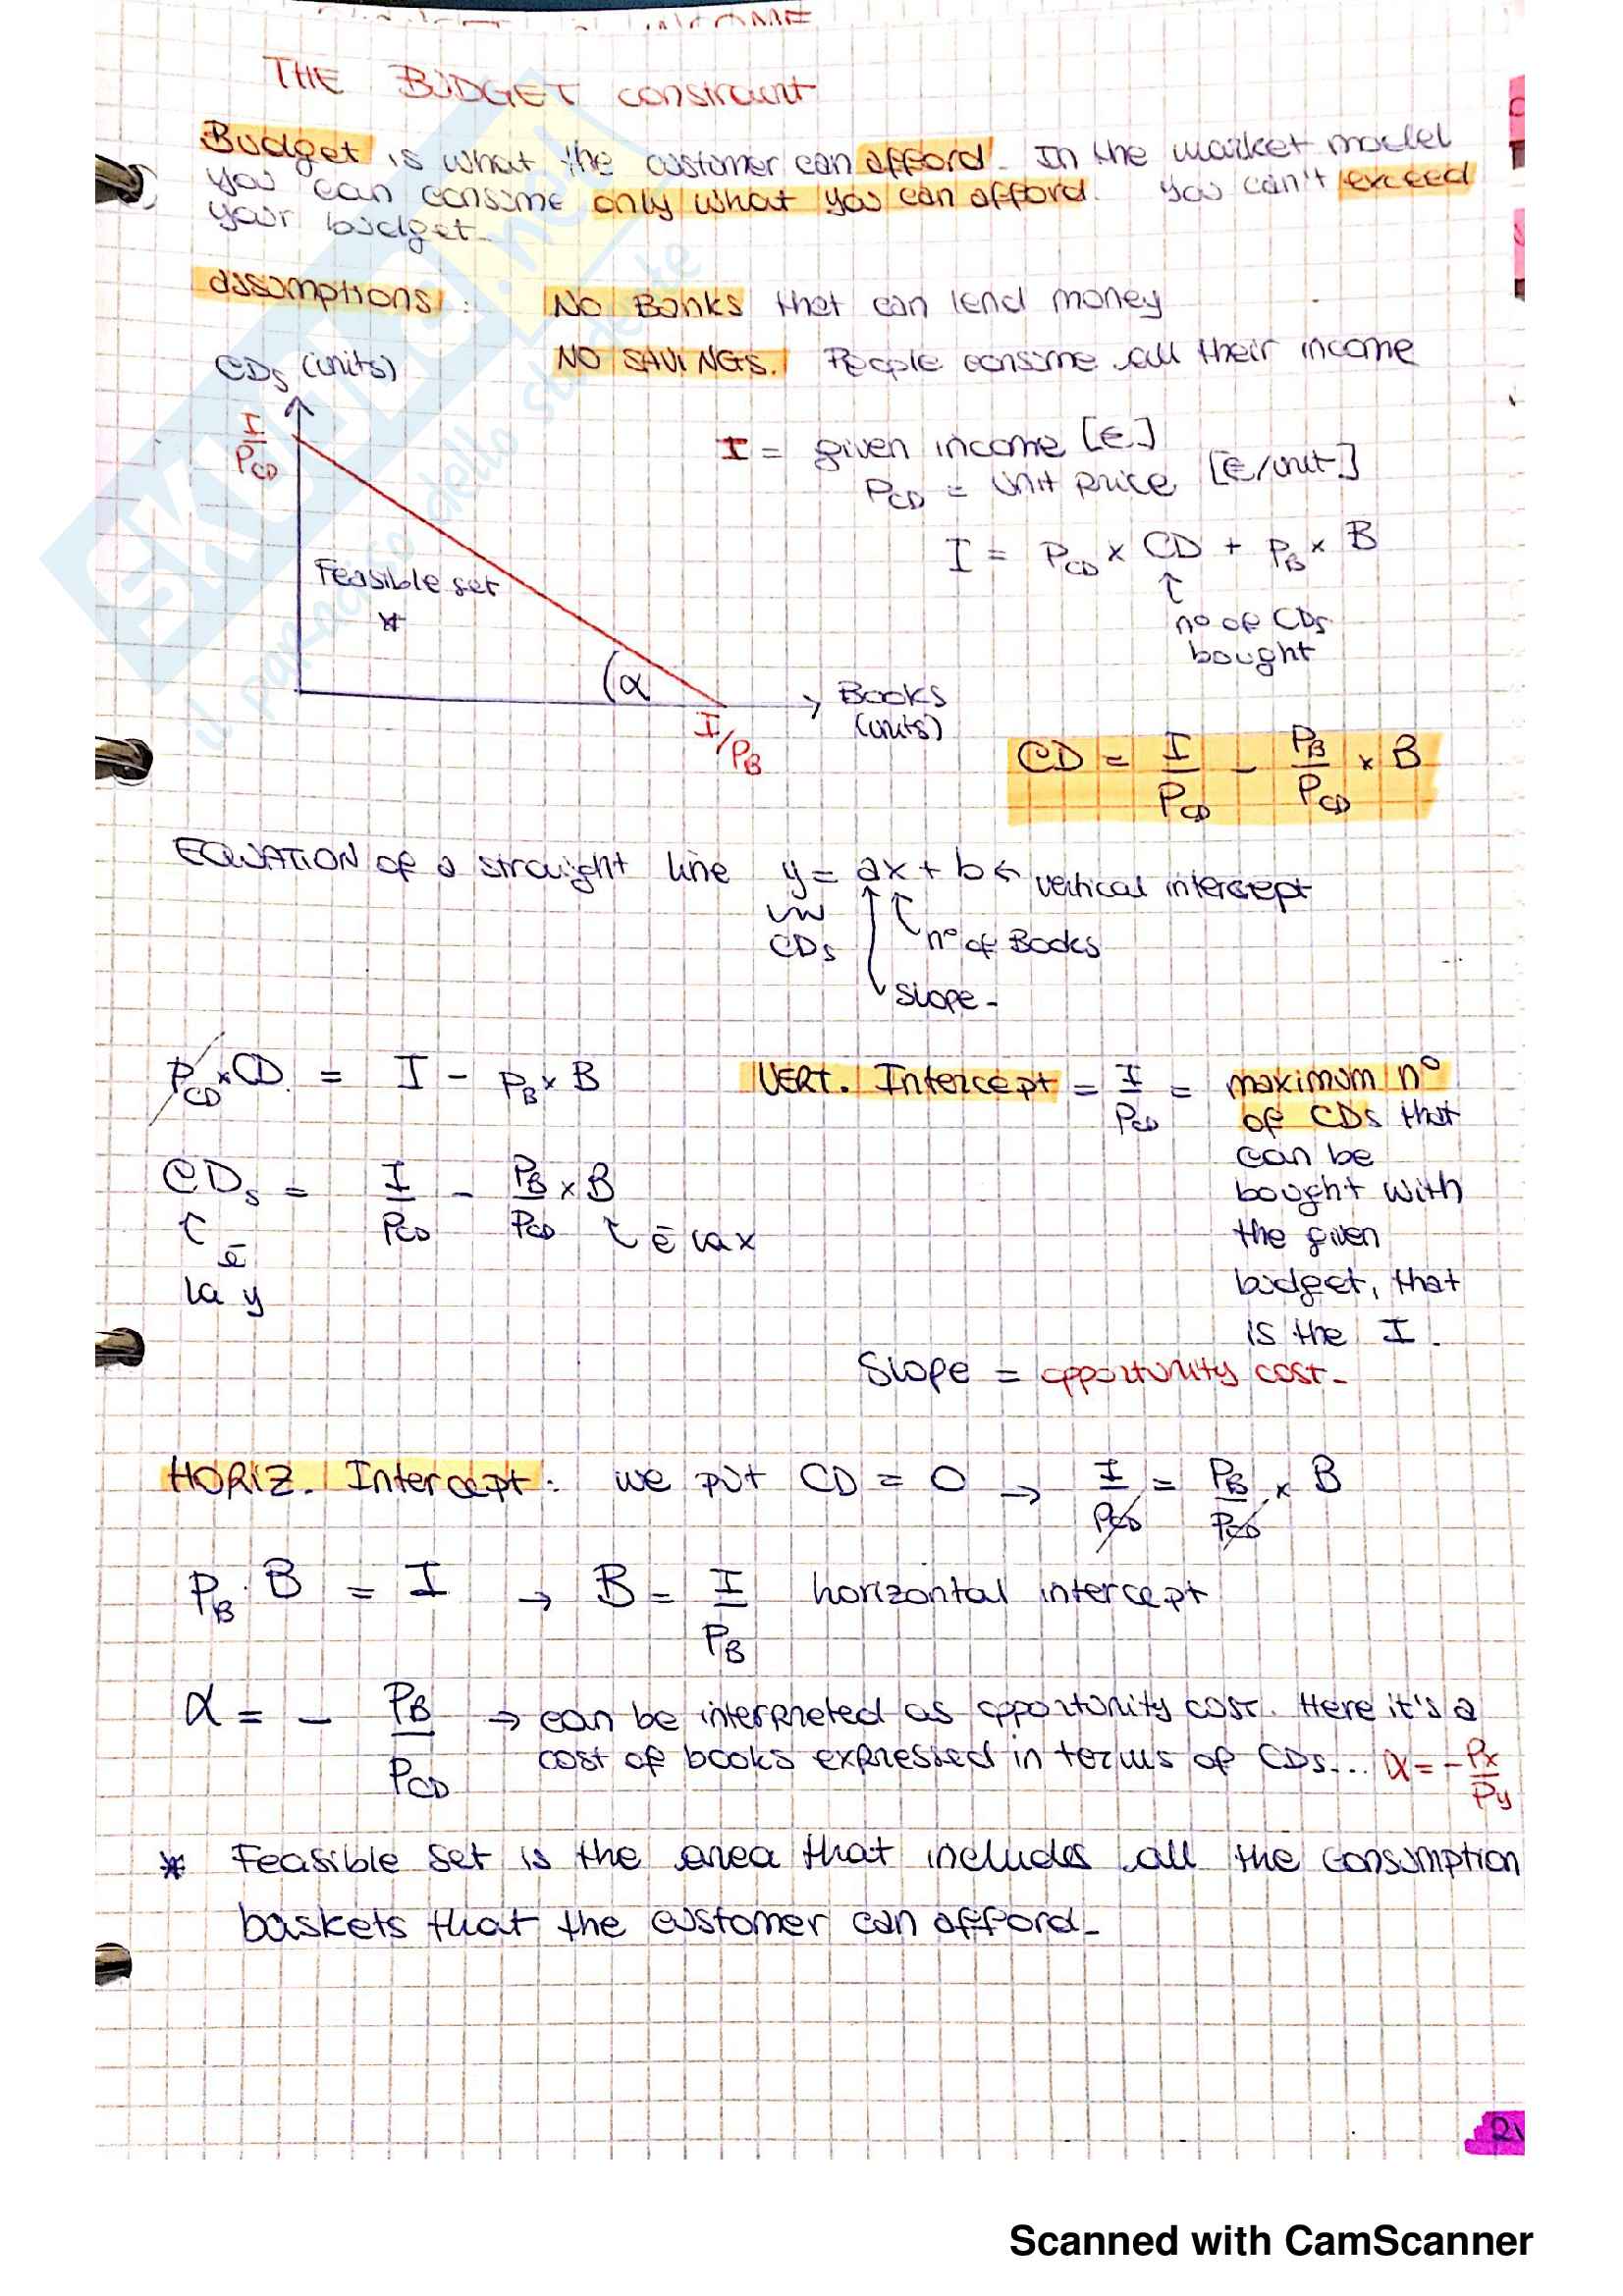 THE BUDGET constraint
Budget is what the customer can afford. In the market model
you can consume only what you can afford. You can't exceed
your budget.
assumptions: No Banks that can lend money
CDs (units) NO SAVINGS. People consume all their income
I
PCD
I = given income [€]
PCD = unit price [€/unit]
I = PCD × CD + PB × B
n° of CDs
bought
Feasible set
*
α
Books
(units)
I/PB
CD = I/PCD - PB/PCD × B
EQUATION of a straight line y = ax + b ← vertical intercept
CDs
n° of Books
slope-
PCD × CD = I - PB × B
VERT. Intercept = I/PCD = maximum n°
of CDs that
can be
bought with
the given
budget, that
is the I.
CDs = I/PCD - PB/PCD × B
è la x
è
la y
Slope = opportunity cost-
HORIZ. Intercept: we put CD = 0 → I/PCD = PB/PCD × B
PB · B = I → B = I/PB horizontal intercept
α = - PB/PCD → can be interpreted as opportunity cost. Here it's a
cost of books expressed in terms of CDs... α = - Px/Py
* Feasible set is the area that includes all the consumption
baskets that the customer can afford-
SKUOLA.net
il paradiso dello studente
Scanned with CamScanner